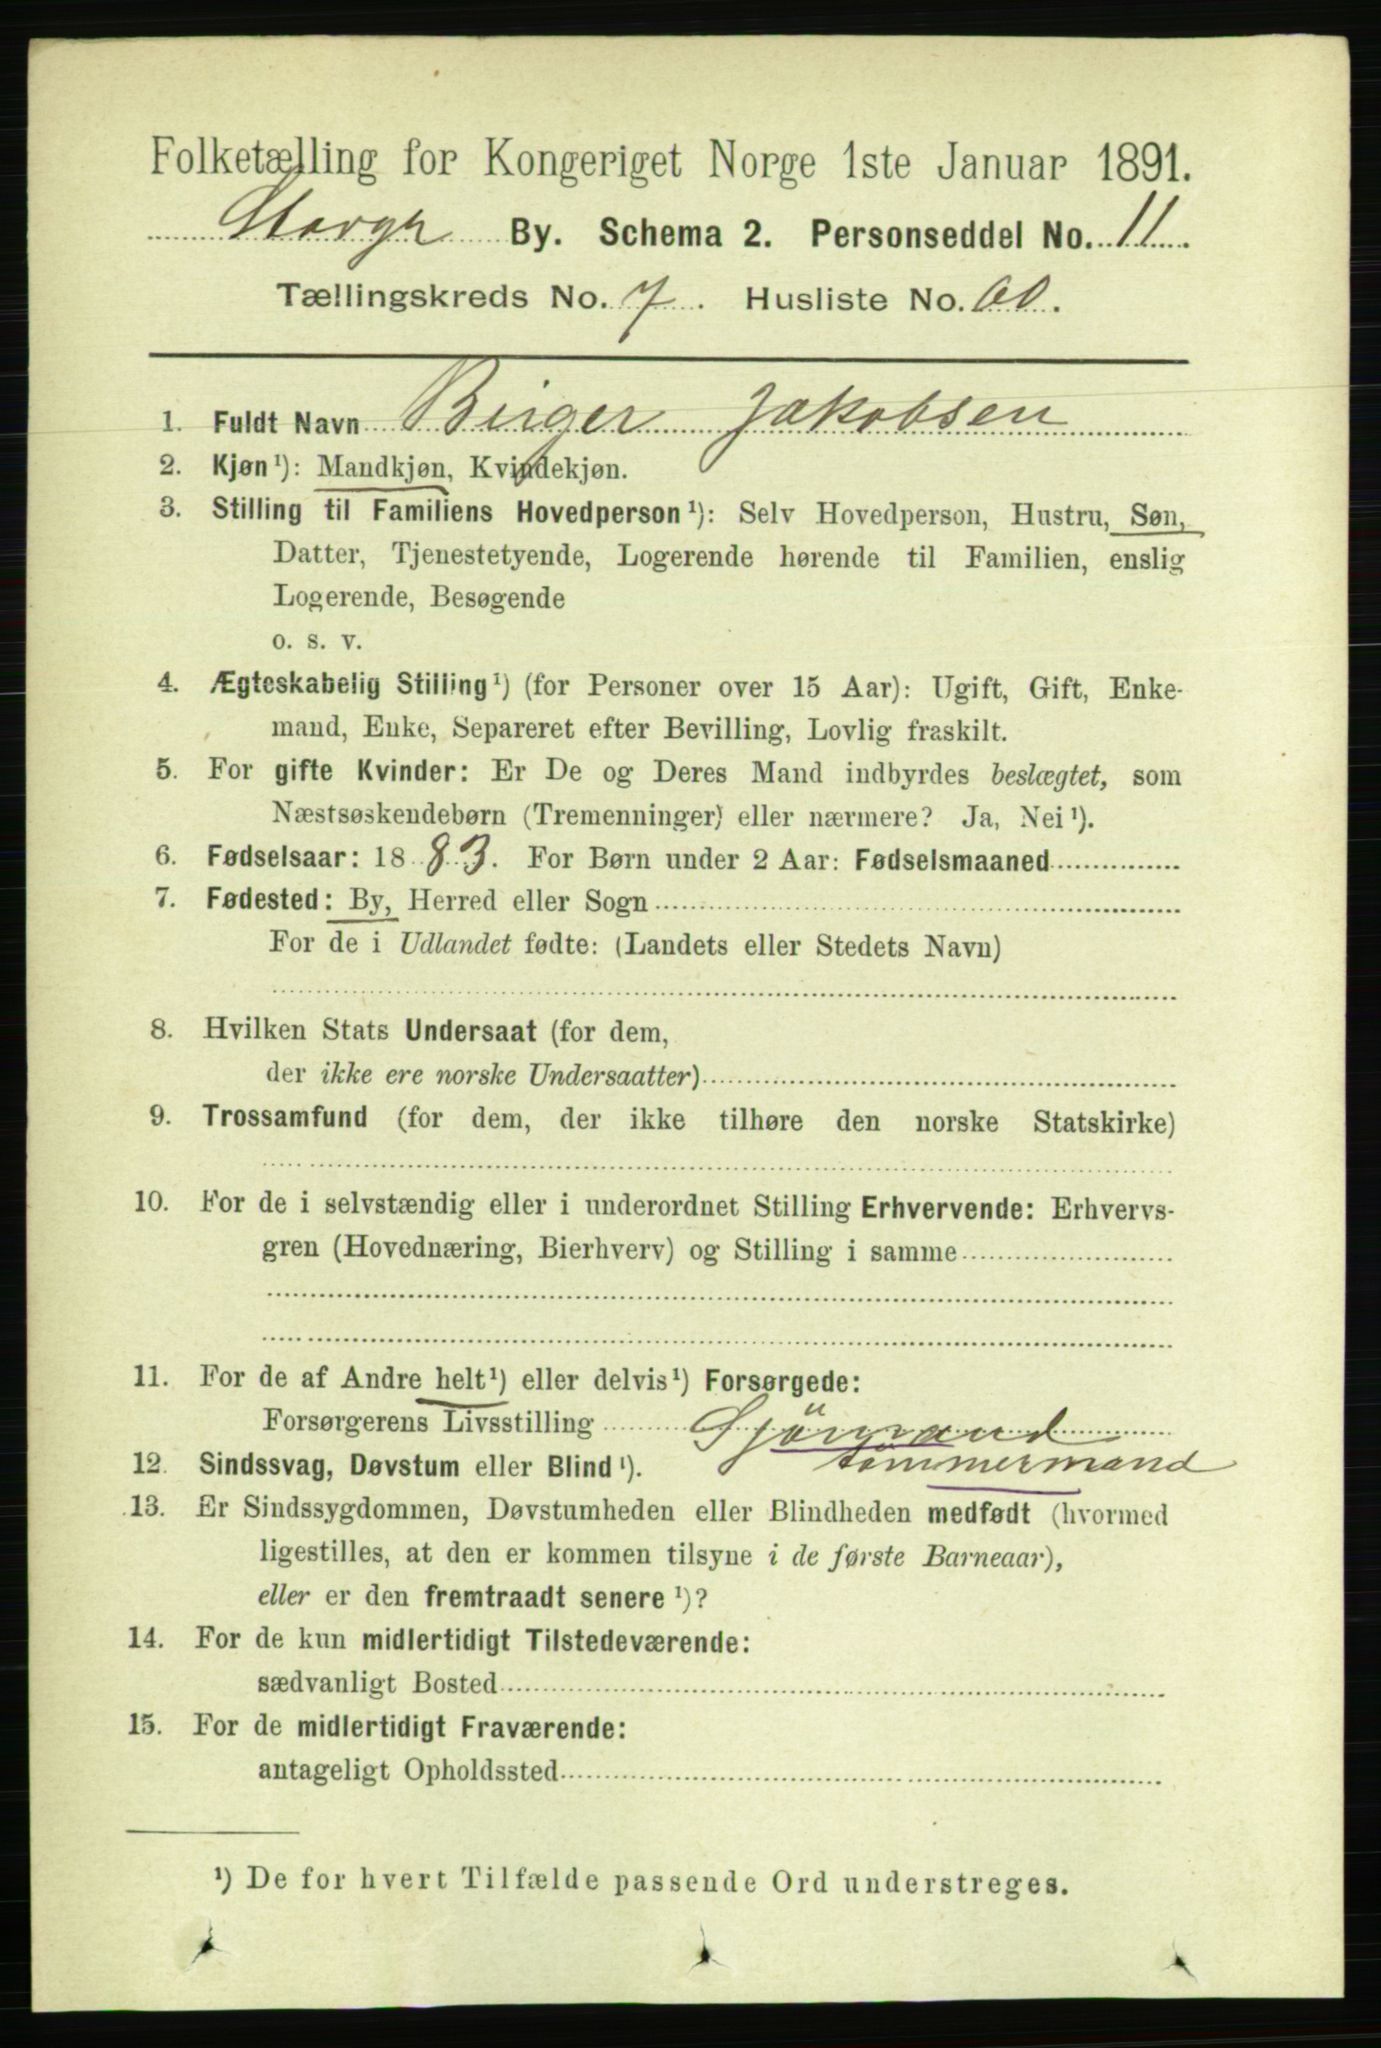 Folketælling for Kongeriget Norge 1ste Januar 1891.
By. Schema 2. Personseddel No. 11.
Tællingskreds No. 7. Husliste No. 60.
1. Fuldt Navn Birger Jakobsen
2. Kjøn¹): Mandkjøn, Kvindekjøn.
3. Stilling til Familiens Hovedperson¹): Selv Hovedperson, Hustru, Søn,
Datter, Tjenestetyende, Logerende hørende til Familien, enslig
Logerende, Besøgende
o. s. v.
4. Ægteskabelig Stilling¹) (for Personer over 15 Aar): Ugift, Gift, Enke-
mand, Enke, Separeret efter Bevilling, Lovlig fraskilt.
5. For gifte Kvinder: Er De og Deres Mand indbyrdes beslægtet, som
Næstsøskendebørn (Tremenninger) eller nærmere? Ja, Nei¹).
6. Fødselsaar: 1883. For Børn under 2 Aar: Fødselsmaaned
7. Fødested: By, Herred eller Sogn
For de i Udlandet fødte: (Landets eller Stedets Navn)
8. Hvilken Stats Undersaat (for dem,
der ikke ere norske Undersaatter)
9. Trossamfund (for dem, der ikke tilhøre den norske Statskirke)
10. For de i selvstændig eller i underordnet Stilling Erhvervende: Erhvervs-
gren (Hovednæring, Bierhverv) og Stilling i samme
11. For de af Andre helt¹) eller delvis¹) Forsørgede:
Forsørgerens Livsstilling Sjömand
tömmermand
12. Sindssvag, Døvstum eller Blind¹).
13. Er Sindssygdommen, Døvstumheden eller Blindheden medfødt (hvormed
ligestilles, at den er kommen tilsyne i de første Barneaar),
eller er den fremtraadt senere¹)?
14. For de kun midlertidigt Tilstedeværende:
sædvanligt Bosted
15. For de midlertidigt Fraværende:
antageligt Opholdssted
¹) De for hvert Tilfælde passende Ord understreges.